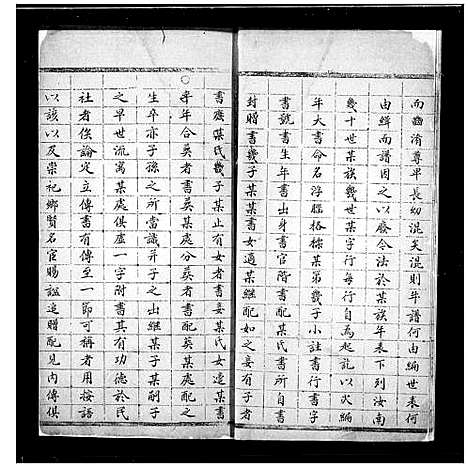 而齒湑尊卑長幼混矣混則年譜何由編世表何
由緝而譜因之以廢今法於某族年表下列汝南
幾十世某族幾世某字行每行自為起訖以次編
年大書命名浮籤格標某第幾子小註書行書字
書號書生年書出身書官階書配某氏書所自書
封贈書幾子某某書女適某繼配如之妾有子者
書庶某氏幾子某止有女者書妾某氏女適某書
卒年合葬者書葬某處分葬者書配葬某處配之
生卒亦子孫之所當識并子之出繼某子某嗣子
之早世流寓某處俱虛一字附書其有功德於民
社者俟論定立傳書有傳至一節可稱者用按語
以該以及崇祀鄉賢名宦賜諡追贈配見內傳俱